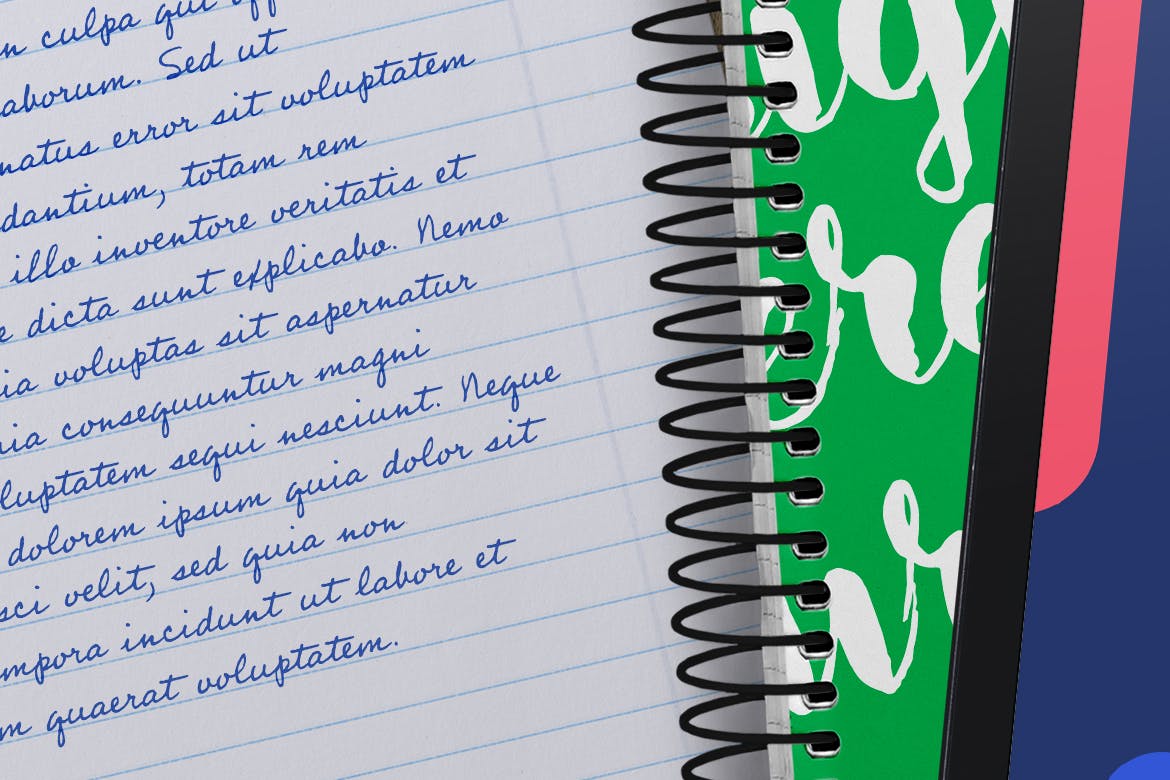 n culpa qui off
aborum. Sed ut
natus error sit voluptatem
dantium, totam rem
illo inventore veritatis et
e dicta sunt explicabo. Nemo
ia voluptas sit aspernatur
uia consequuntur magni
luptatem sequi nesciunt. Neque
dolorem ipsum quia dolor sit
sci velit, sed quia non
mpora incidunt ut labore et
m quaerat voluptatem.